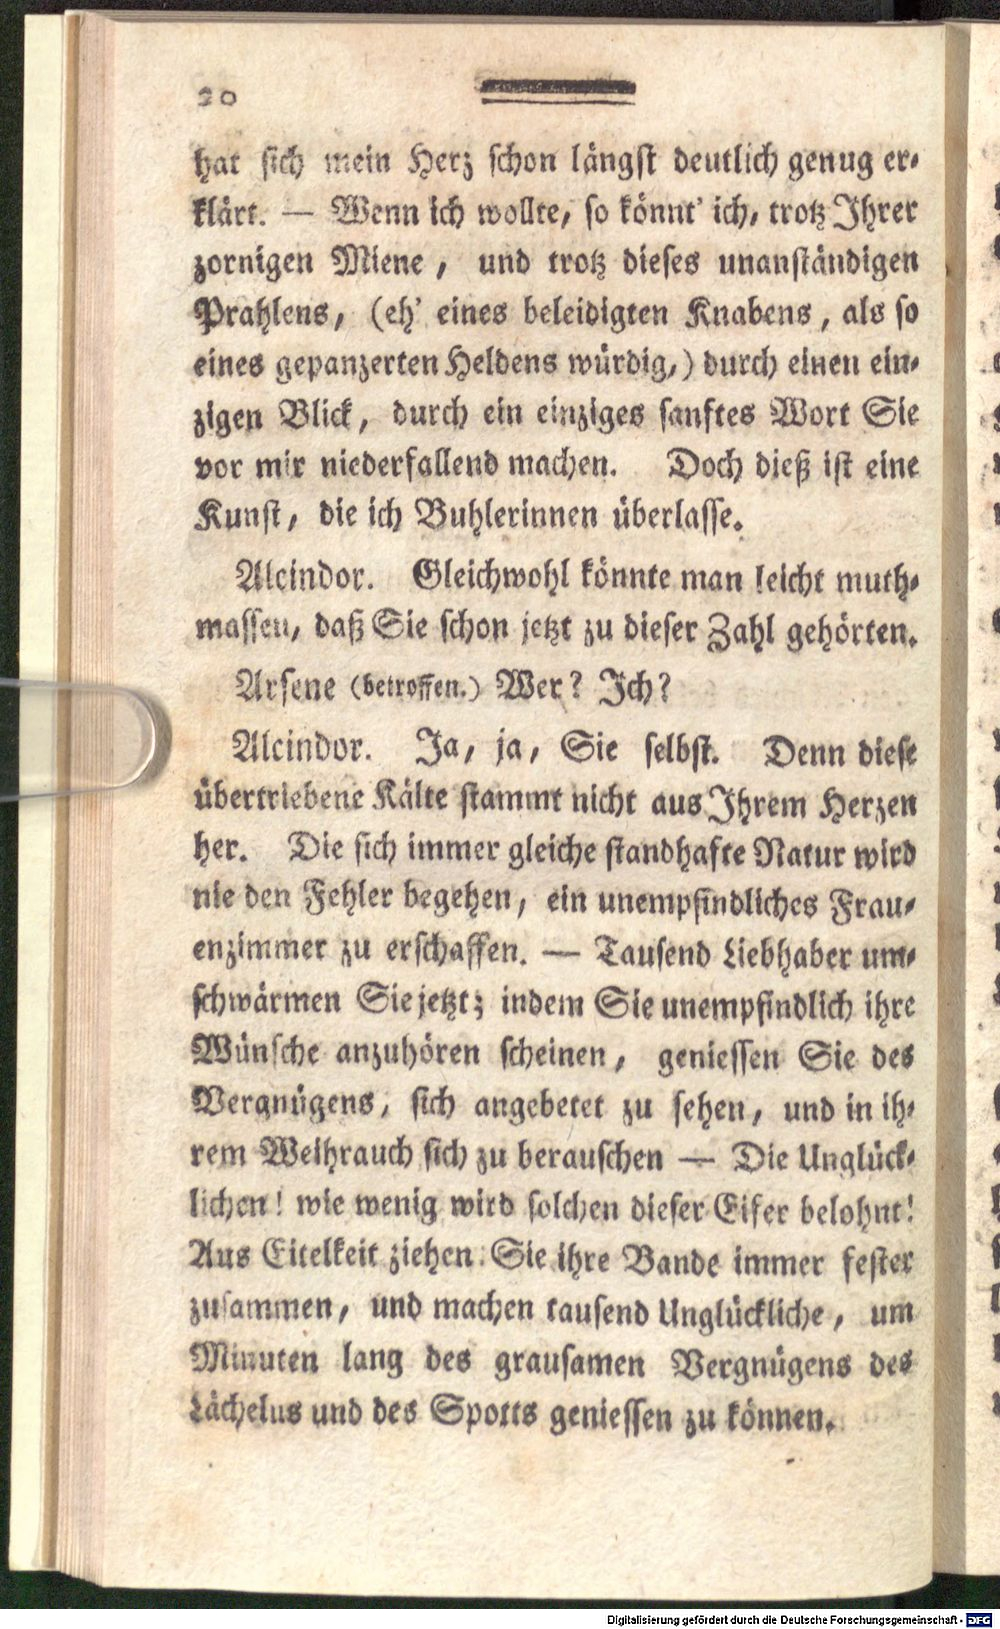 20
hat sich mein Herz schon längst deutlich genug er-
klärt. — Wenn ich wollte, so könnt' ich, trotz Ihrer
zornigen Miene, und trotz dieses unanständigen
Prahlens, (eh' eines beleidigten Knabens, als so
eines gepanzerten Heldens würdig,) durch einen ein-
zigen Blick, durch ein einziges sanftes Wort Sie
vor mir niederfallend machen. Doch dieß ist eine
Kunst, die ich Buhlerinnen überlasse.
Alcindor. Gleichwohl könnte man leicht muth-
massen, daß Sie schon jetzt zu dieser Zahl gehörten.
Arsene (betroffen.) Wer? Ich?
Alcindor. Ja, ja, Sie selbst. Denn diese
übertriebene Kälte stammt nicht aus Ihrem Herzen
her. Die sich immer gleiche standhafte Natur wird
nie den Fehler begehen, ein unempfindliches Frau-
enzimmer zu erschaffen. — Tausend Liebhaber um-
schwärmen Sie jetzt; indem Sie unempfindlich ihre
Wünsche anzuhören scheinen, geniessen Sie des
Vergnügens, sich angebetet zu sehen, und in ih-
rem Weihrauch sich zu berauschen — Die Unglück-
lichen! wie wenig wird solchen dieser Eifer belohnt!
Aus Eitelkeit ziehen Sie ihre Bande immer fester
zusammen, und machen tausend Unglückliche, um
Minuten lang des grausamen Vergnügens des
Lächelns und des Spotts geniessen zu können.
Digitalisierung gefördert durch die Deutsche Forschungsgemeinschaft - DFG